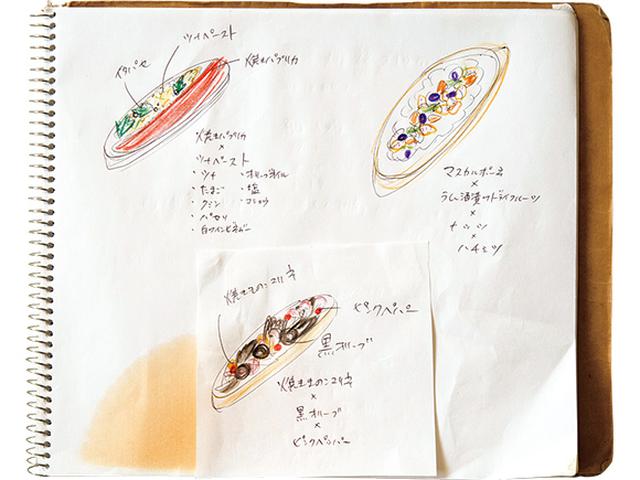 ツナペースト
イタパセ
焼きパプリカ
焼きパプリカ
×
ツナペースト
・ツナ ・オリーブオイル
・たまご ・塩
・クミン ・コショウ
・パセリ
・白ワインビネガー
マスカルポーネ
×
ラム酒漬けドライフルーツ
×
ナッツ
×
ハチミツ
焼きキノコ
ピンクペパー
黒オリーブ
焼きキノコ
×
黒オリーブ
×
ピンクペッパー